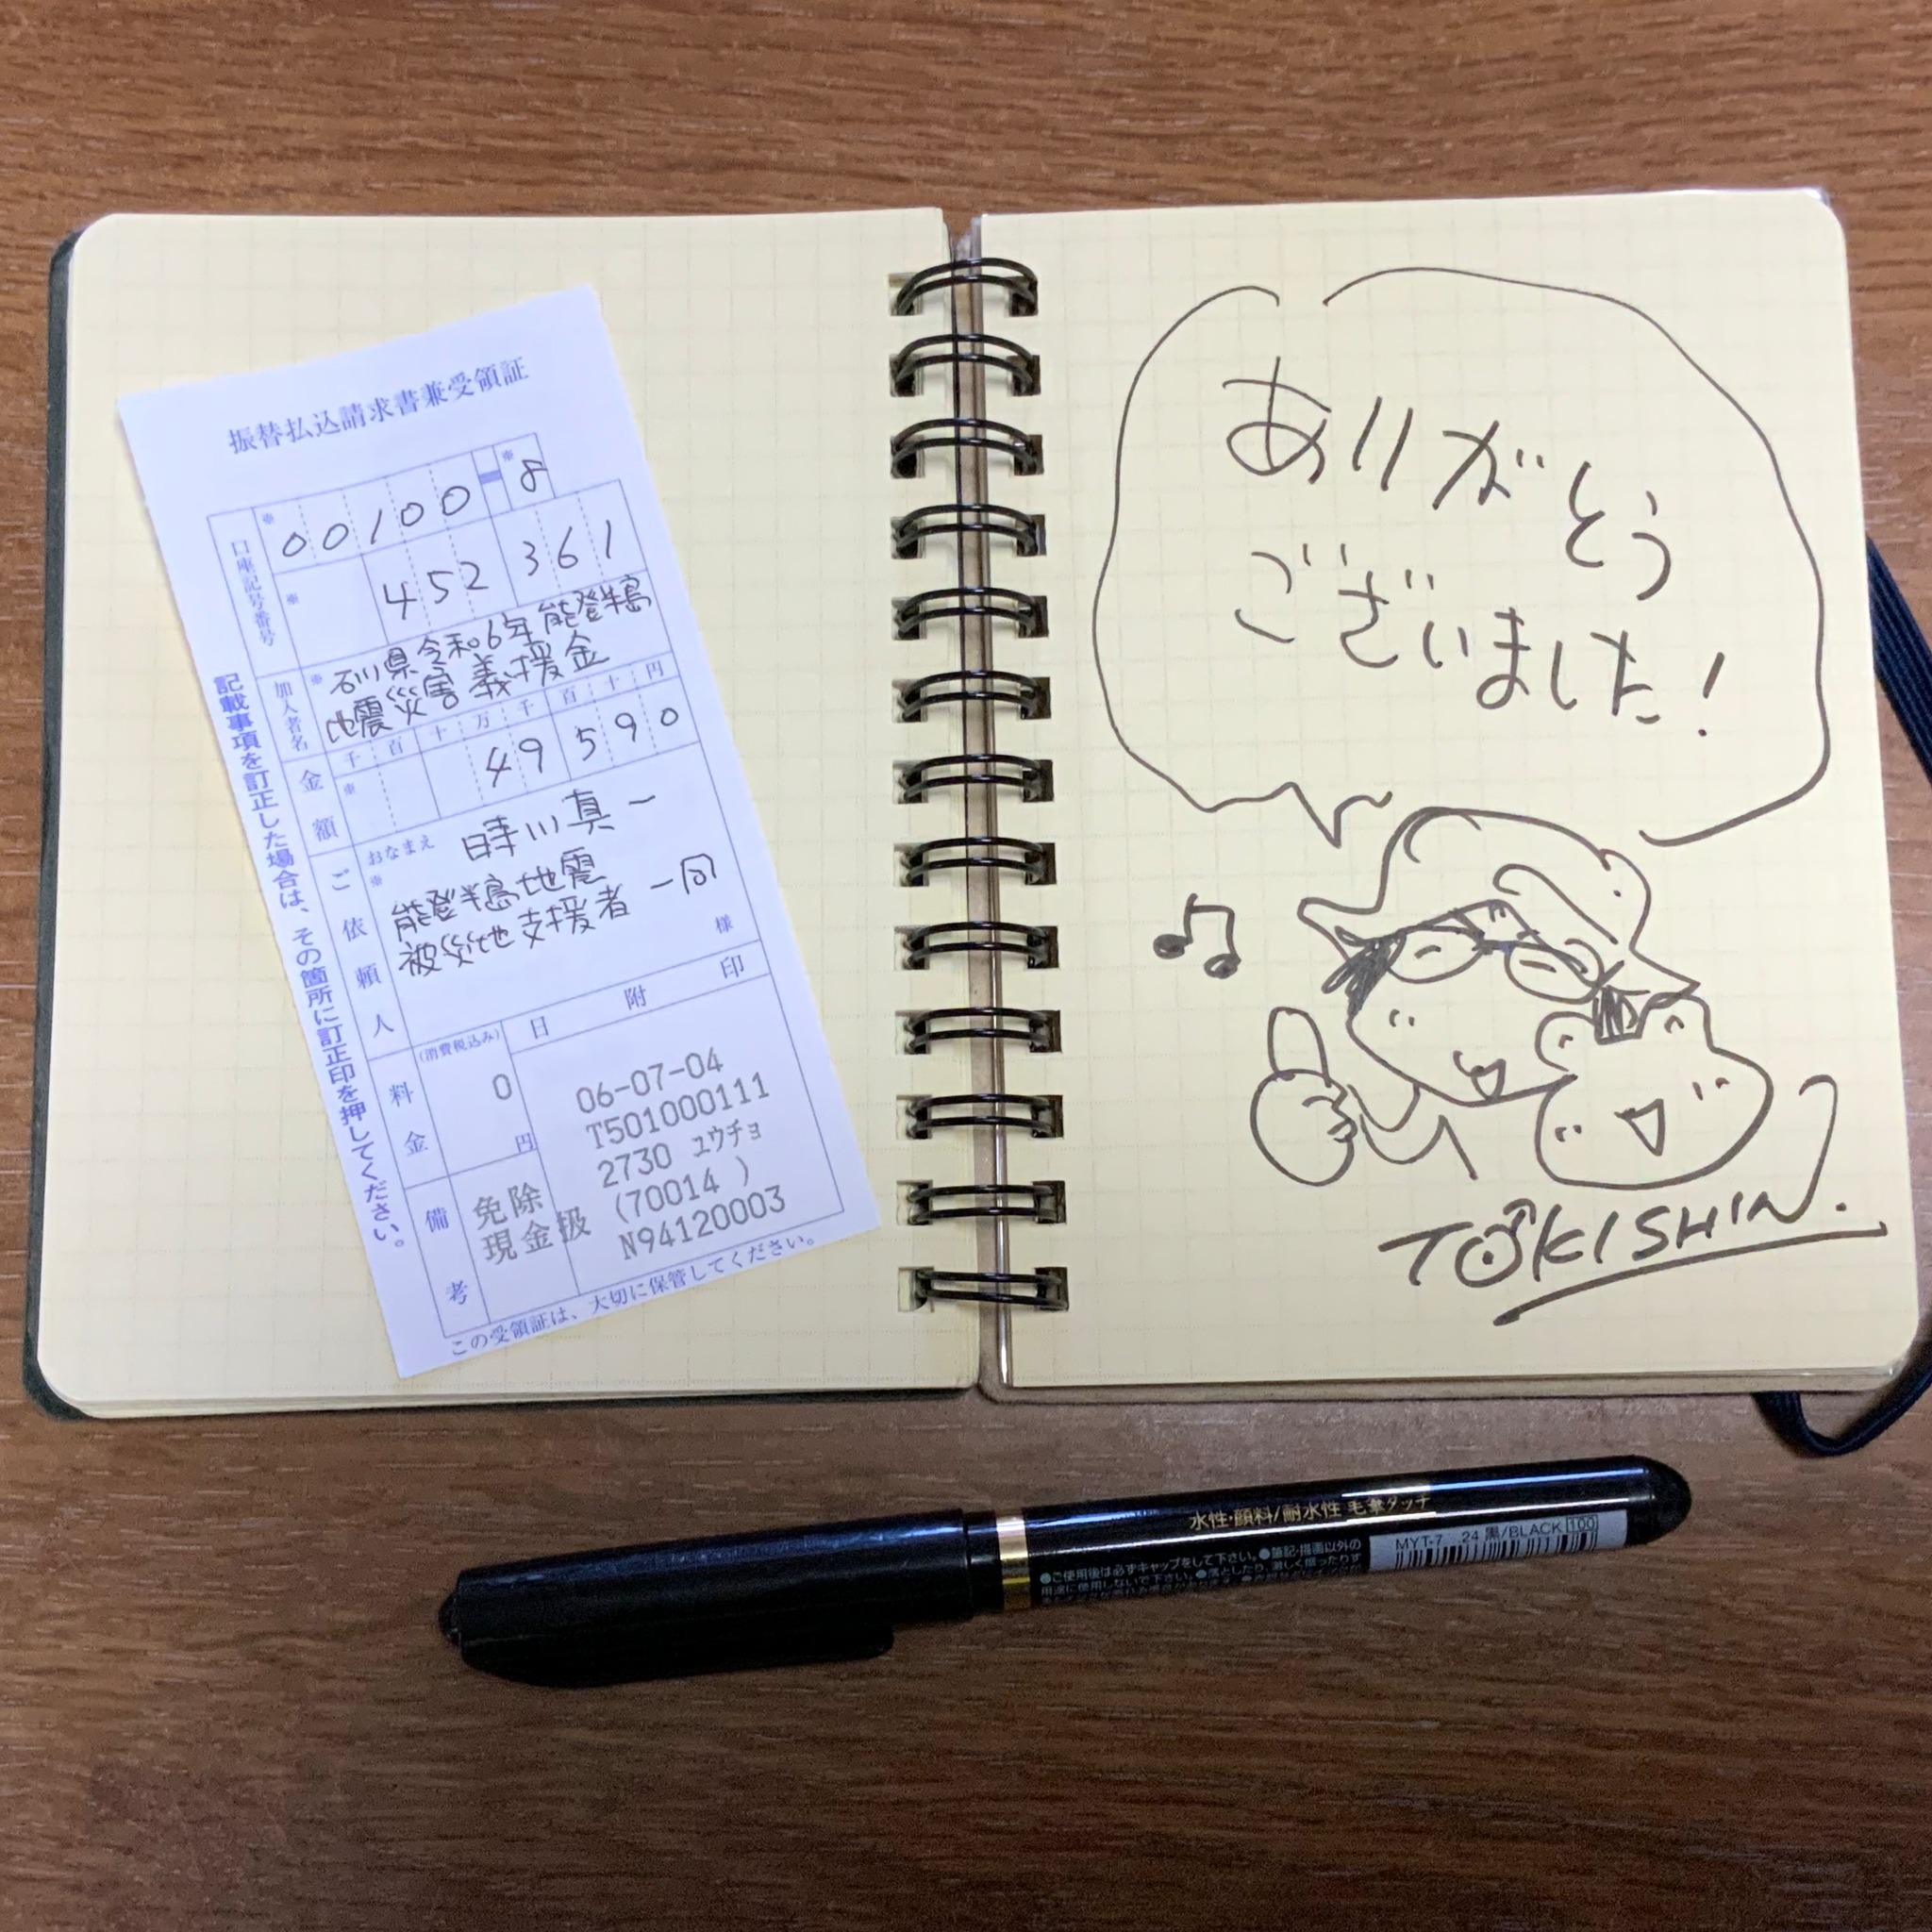 振替払込請求書兼受領証
口座記号番号
※ 00100 ※ 8
※ 452361
加入者名
※ 石川県令和6年能登半島
地震災害義援金
金額
千 百 十 万 千 百 十 円
※ 49590
ご依頼人
おなまえ
※
時川真一
能登半島地震
被災地支援者一同
様
料金
(消費税込み)
0
円
日 附 印
06-07-04
T501000111
2730 ユウチョ
(70014 )
N94120003
備考
免除
現金扱
記載事項を訂正した場合は、その箇所に訂正印を押してください。
この受領証は、大切に保管してください。
ありがとう
ございました!
TOKISHIN.
水性・顔料/耐水性 毛筆タッチ
●ご使用後は必ずキャップをして下さい。●筆記・描画以外の
用途に使用しないで下さい。●落としたり、激しく振ったりす
MYT-7 24 黒/BLACK 100